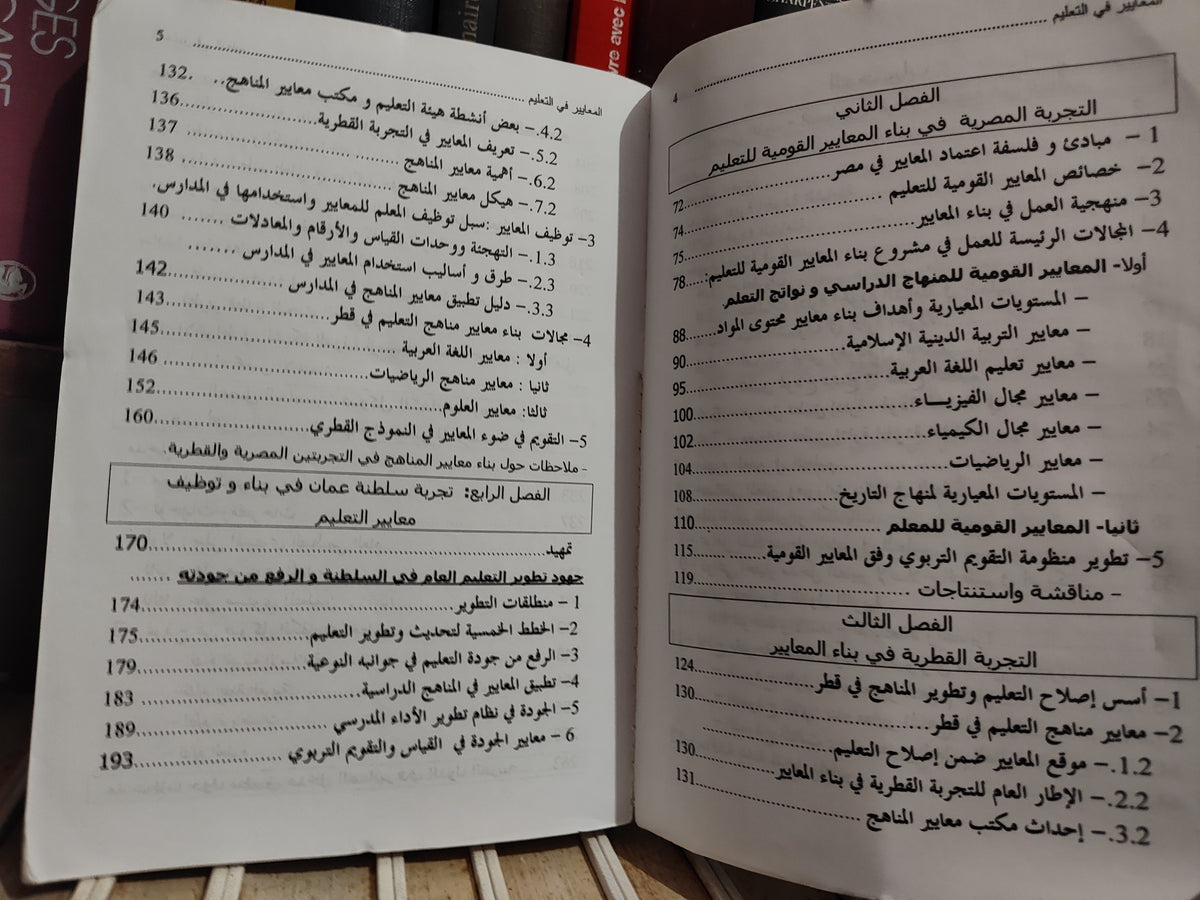 المعايير في التعليم
4
الفصل الثاني
التجربة المصرية في بناء المعايير القومية للتعليم
1 – مبادئ و فلسفة اعتماد المعايير في مصر............72
2– خصائص المعايير القومية للتعليم............74
3– منهجية العمل في بناء المعايير............75
4– المجالات الرئيسة للعمل في مشروع بناء المعايير القومية للتعليم:...78
أولا- المعايير القومية للمنهاج الدراسي و نواتج التعلم
– المستويات المعيارية وأهداف بناء معايير محتوى المواد......88
– معايير التربية الدينية الإسلامية............90
– معايير تعليم اللغة العربية............95
– معايير مجال الفيزيـــاء............100
– معايير مجال الكيمياء............102
– معايير الرياضيات............104
– المستويات المعيارية لمنهاج التاريخ............108
ثانيا- المعايير القومية للمعلم............110
5– تطوير منظومة التقويم التربوي وفق المعايير القومية............115
– مناقشة واستنتاجات............119
الفصل الثالث
التجربة القطرية في بناء المعايير
1– أسس إصلاح التعليم وتطوير المناهج في قطر............124
2– معايير مناهج التعليم في قطر............130
1.2.– موقع المعايير ضمن إصلاح التعليم............130
2.2.– الإطار العام للتجربة القطرية في بناء المعايير............131
3.2.– إحداث مكتب معايير المناهج............
المعايير في التعليم
5
4.2.– بعض أنشطة هيئة التعليم و مكتب معايير المناهج.. .132
5.2.– تعريف المعايير في التجربة القطرية............136
6.2.– أهمية معايير المناهج............137
7.2.– هيكل معايير المناهج............138
3– توظيف المعايير :سبل توظيف المعلم للمعايير واستخدامها في المدارس.
1.3.– التهجئة ووحدات القياس والأرقام والمعادلات .......140
2.3.– طرق و أساليب استخدام المعايير في المدارس ........
3.3.– دليل تطبيق معايير المناهج في المدارس............142
4– مجالات بناء معايير مناهج التعليم في قطر............143
أولا : معايير اللغة العربية............145
ثانيا : معايير مناهج الرياضيات............146
ثالثا: معايير العلوم............152
5– التقويم في ضوء المعايير في النموذج القطري............160
- ملاحظات حول بناء معايير المناهج في التجربتين المصرية والقطرية.
الفصل الرابع: تجربة سلطنة عمان في بناء و توظيف
معايير التعليم
تمهيد............170
جهود تطوير التعليم العام في السلطنة و الرفع من جودته .......
1 – منطلقات التطوير............174
2– الخطط الخمسية لتحديث وتطوير التعليم............175
3– الرفع من جودة التعليم في جوانبه النوعية............179
4– تطبيق المعايير في المناهج الدراسية............183
5– الجودة في نظام تطوير الأداء المدرسي............189
6 – معايير الجودة في القياس والتقويم التربوي............193